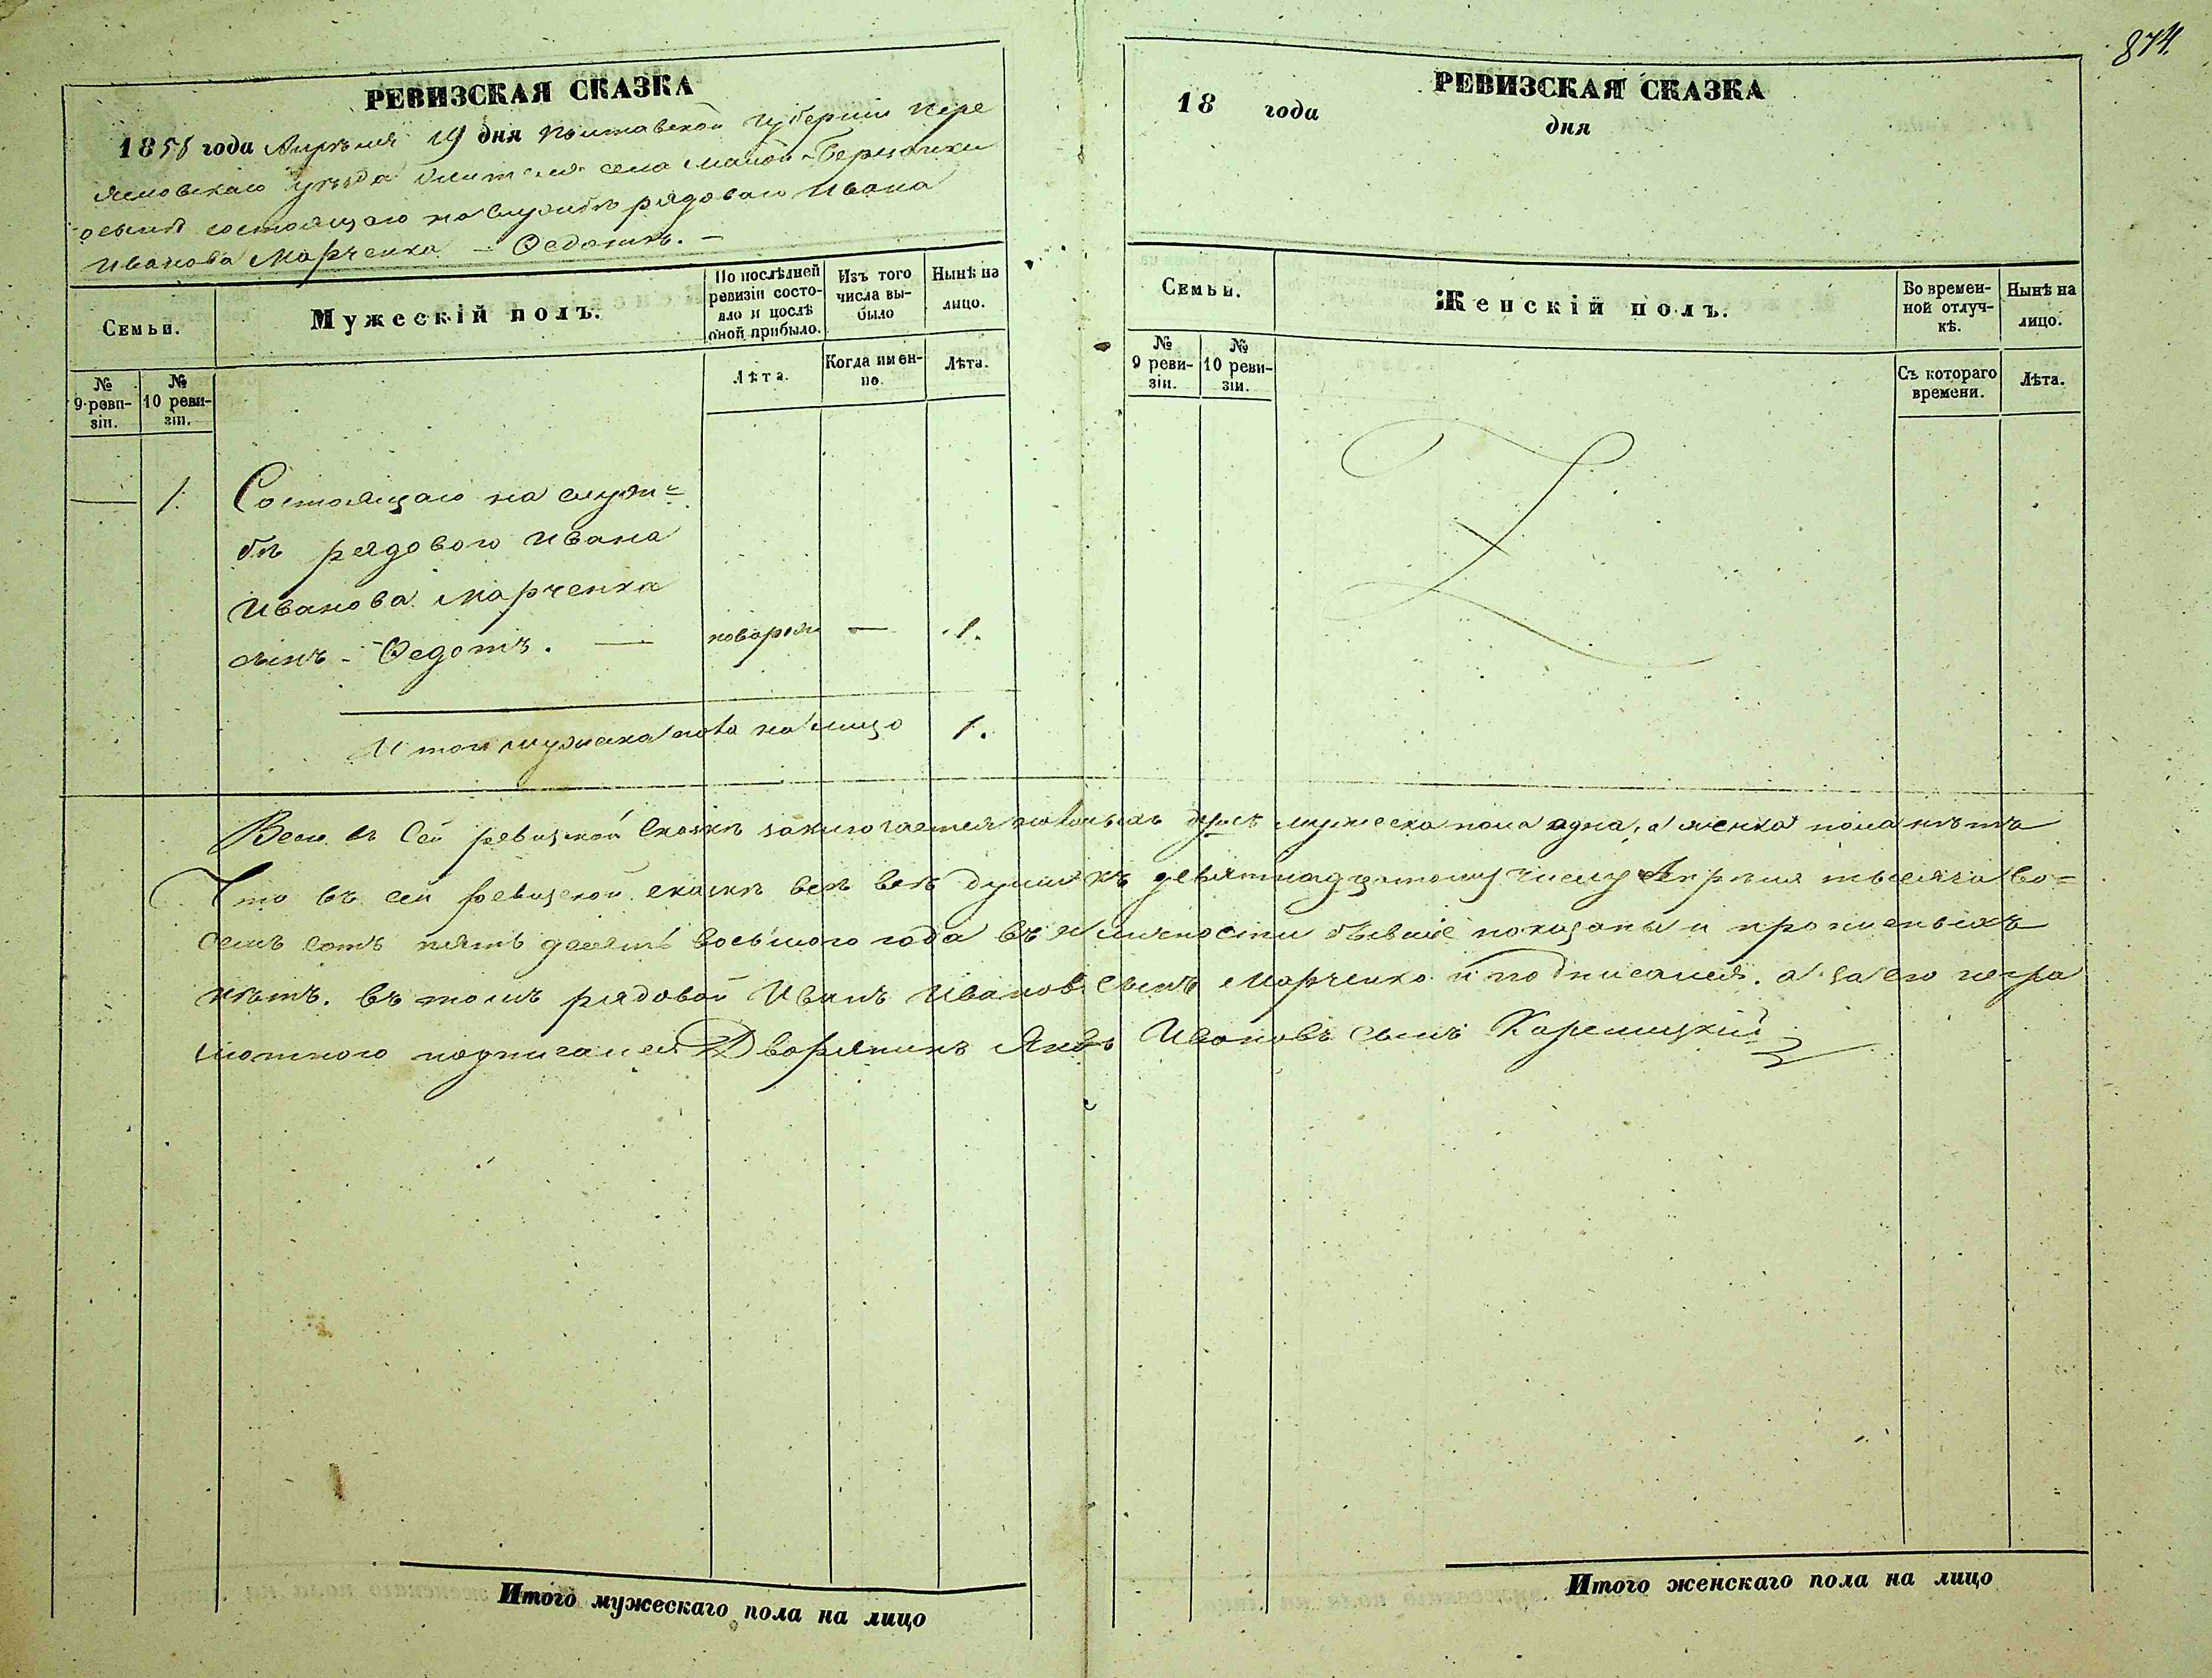 874
РЕВИЗСКАЯ СКАЗКА
1858 года Апрѣля 19 дня Полтавской губерніи Пере
яславскаго уѣзда жителя села Малой-Березанки
о сынѣ состоящаго на службѣ рядоваго Ивана
Иванова Марченка – Ѳедотѣ. –
Семьи.
Мужескій полъ.
По послѣдней ревизіи состо-
яло и послѣ оной прибыло.
Изъ того числа вы-
было
Нынѣ на лицо.
№ 9 реви-
зіи.
№ 10 реви-
зіи.
Лѣта.
Когда имен-
но.
Лѣта.
— 1. Состоящаго на служ=
бѣ рядового Ивана
Иванова Марченка
сынъ - Ѳедотъ. — новорож — 1.
Итого мужеска пола на лицо 1.
РЕВИЗСКАЯ СКАЗКА
18 года дня
Семьи.
Женскій полъ.
Во времен-
ной отлуч-
кѣ.
Нынѣ на лицо.
№ 9 реви-
зіи.
№ 10 реви-
зіи.
Съ котораго времени.
Лѣта.
Всего въ сей ревизской сказкѣ заключается наличныхъ душъ мужеска пола одна, а женска пола нѣтъ
Что въ сей ревизской сказкѣ всѣ душы къ девятнадцатому числу Апрѣля тысяча во=
семъ сотъ пять десятъ восьмого года въ наличности бывшіе показаны и прописныхъ
нѣтъ. въ томъ рядовой Иванъ Ивановъ сынъ Марченко и подписался. а за его негра
мотного подписался Дворянинъ Яковъ Ивановъ сынъ
Итого мужескаго пола на лицо
Итого женскаго пола на лицо